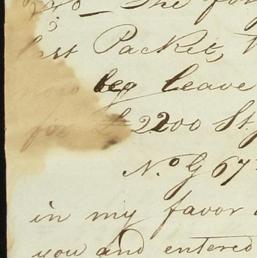 The
last Packet,
now beg leave
for £2200 St.
No. G 67
in my favor
you and entered